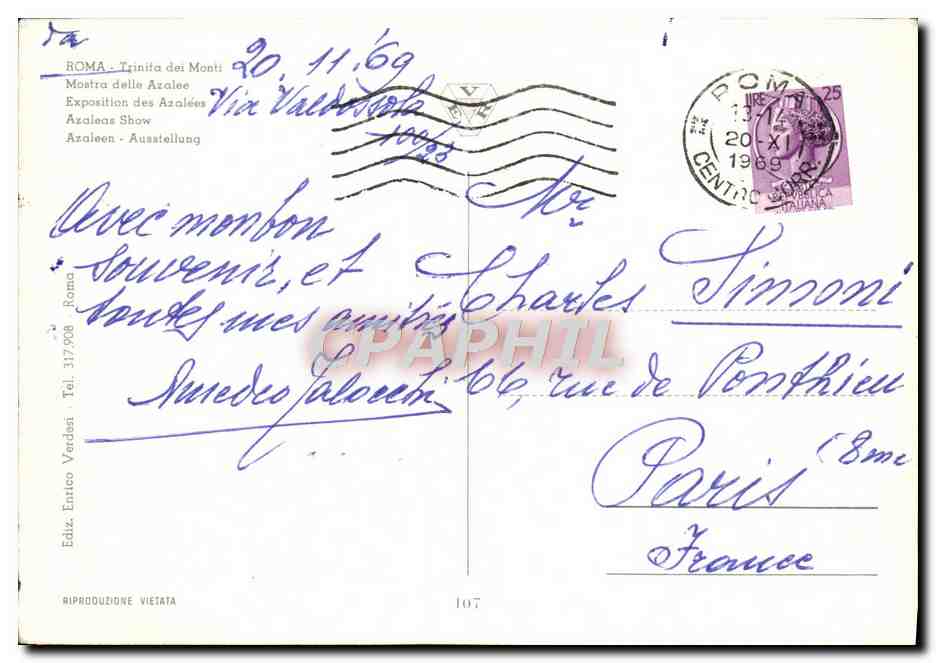 da
ROMA - Trinita dei Monti
Mostra delle Azalee
Exposition des Azalées
Azaleas Show
Azaleen - Ausstellung
20.11.'69
Via Valdossola
100/23
VER
ROMA
13-14
20-XI
1969
CENTRO CORR.
LIRE 25
REPUBBLICA
ITALIANA
Avec mon bon
souvenir, et
toutes mes amitiés
Amedeo
Mr
Charles Simoni
66, rue de Ponthieu
Paris (8me
France
CPAPHIL
Ediz. Enrico Verdesi - Tel. 317.908 - Roma
RIPRODUZIONE VIETATA
107